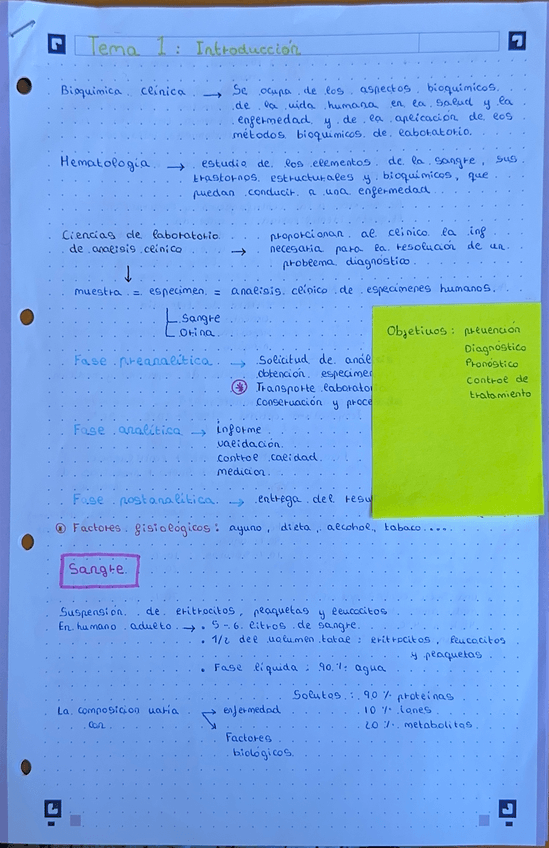 Tema 1: Introducción
Bioquímica clínica → Se ocupa de los aspectos bioquímicos
de la vida humana en la salud y la
enfermedad y de la aplicación de los
métodos bioquímicos de laboratorio.
Hematología → estudio de los elementos de la sangre, sus
trastornos estructurales y bioquímicos, que
puedan conducir a una enfermedad.
Ciencias de laboratorio
de analisis clínico
→ proporcionar al clínico la inf
necesaria para la resolución de un
problema diagnóstico.
↓
muestra = especimen = analisis clínico de especimenes humanos.
Sangre
Orina
Objetivos: prevención
Diagnóstico
Pronóstico
control de
tratamiento
Fase preanalítica → Solicitud de anál
obtención especimen
* Transporte laborato
conservación y proce
Fase analítica → informe
validación
control calidad
medicion
Fase postanalítica → entrega del resu
* Factores fisiológicos: ayuno, dieta, alcohol, tabaco....
Sangre
Suspensión de eritrocitos, plaquetas y leucocitos
En humano adulto → • 5-6 litros de sangre.
• 1/2 del volumen total: eritrocitos, leucocitos
y plaquetas
• Fase líquida: 90% agua
Solutos: 90% proteínas
10% iones
20% metabolitos
La composicion varia
con
→ enfermedad
Factores
biológicos